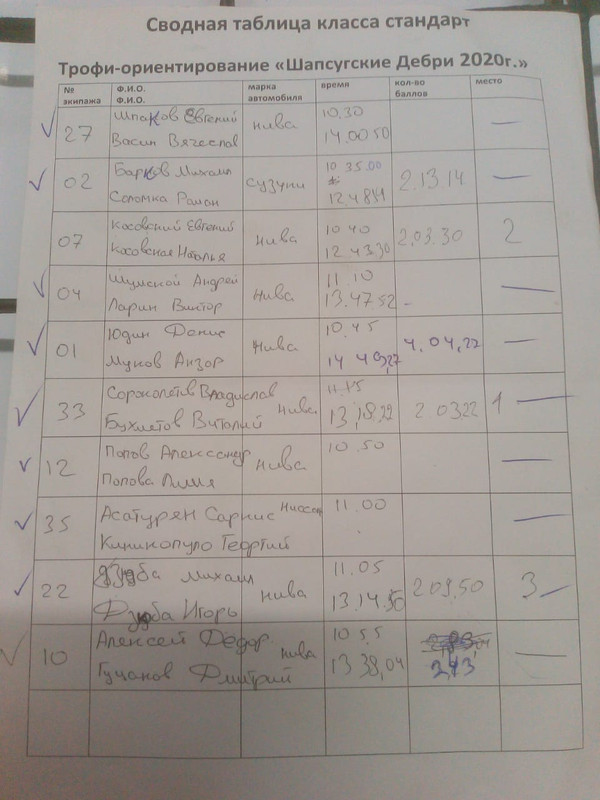 Сводная таблица класса стандарт
Трофи-ориентирование «Шапсугские Дебри 2020г.»
№ экипажа Ф.И.О. Ф.И.О. марка автомобиля время кол-во баллов место
27 Шпаков Евгений нива 10.30 —
Васин Вячеслав 14.00 50
02 Барков Михаил сузуки 10 35.00 2.13.14 —
Соломка Роман
07 Косовский Евгений нива 10 40 2,03.30 2
Косовская Наталья 12 43.30
04 Шумской Андрей нива 11.10 - —
Ларин Виктор 13.47 52
01 Юдин Денис нива 10.45 4.04,27 —
Муков Анзор 14 49,27
33 Владислав нива 11.15 2 03 22 1 —
Виталий 13,18,22
12 Попов Александр нива 10 50 —
Попова Лилия
35 Асатурян Саркис 11.00 —
Кипинопуло Георгий
22 Дзюба Михаил нива 11.05 2 09.50 3 —
Дзюба Игорь 13.14.50
10 Алексей Федор нива 10 55 —
Гуцаков Дмитрий 13 38,04